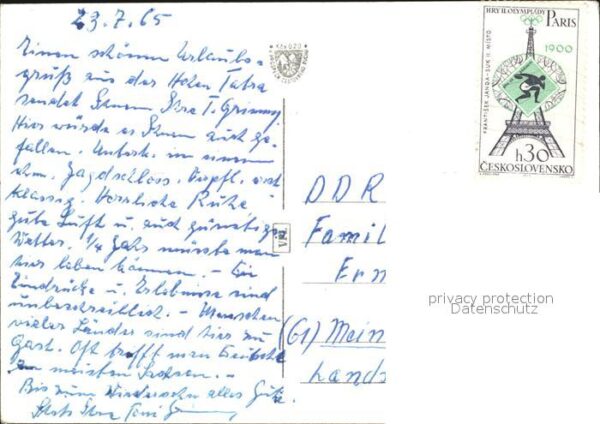 23.7.65
Einen schönen Urlaubs-
gruß aus der Hohen Tatra
sendet Ihnen Ihre T.
Hier würde es Ihnen auch ge-
fallen. Unterk. in einem
ehm. Jagdschloss. Verpfl. erst
klassig. Herrliche Ruhe
gute Luft u. auch günstiges
Wetter. 1/4 Jahr müsste man
hier leben können. – Die
Eindrücke u. Erlebnisse sind
unbeschreiblich. – Menschen
vieler Länder sind hier zu
Gast. Oft trifft man Deutsche
am meisten Sachsen. –
Bis zum Wiedersehn alles Gute.
Stets Ihre Toni
HRY II. OLYMPIÁDY PARIS
1900
FRANTIŠEK JANDA-SUK II. MÍSTO
h 30
ČESKOSLOVENSKO
DDR
Famil
Ern
(61) Mein
Lands
privacy protection
Datenschutz